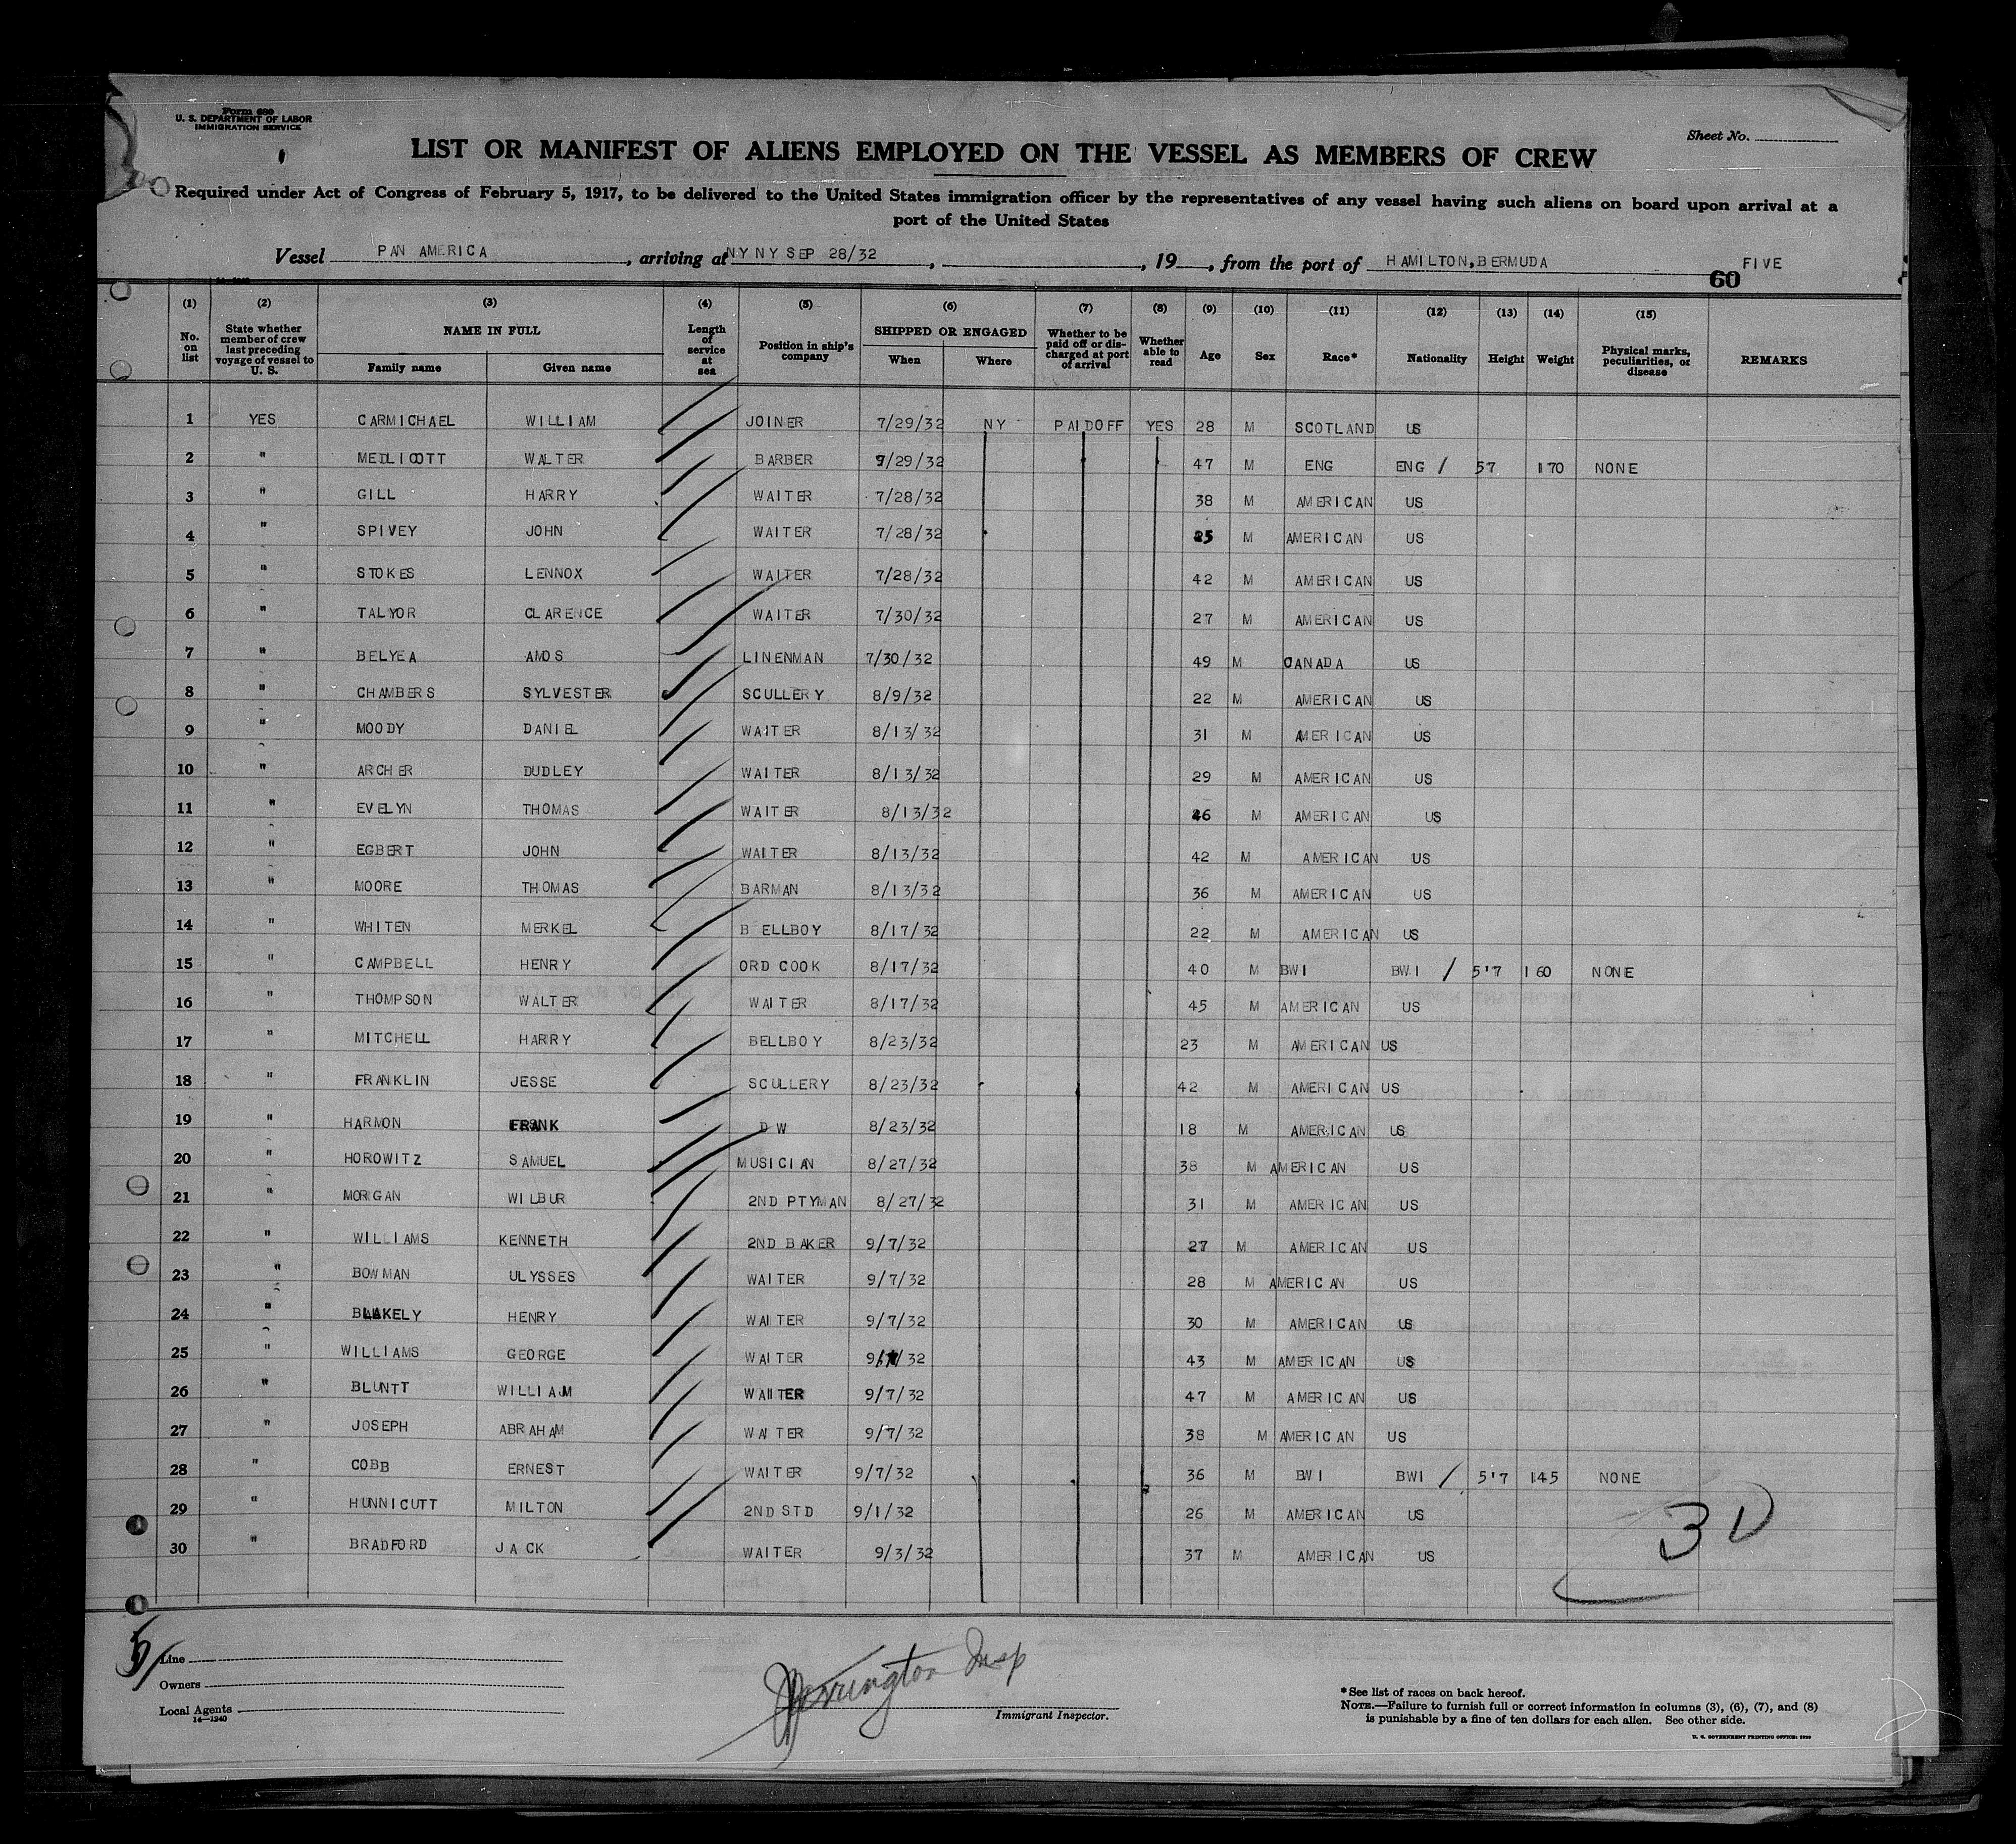 Form 680
U. S. DEPARTMENT OF LABOR
IMMIGRATION SERVICE
Sheet No.
LIST OR MANIFEST OF ALIENS EMPLOYED ON THE VESSEL AS MEMBERS OF CREW
Required under Act of Congress of February 5, 1917, to be delivered to the United States immigration officer by the representatives of any vessel having such aliens on board upon arrival at a
port of the United States
Vessel PAN AMERICA, arriving at NY NY SEP 28/32, , 19 , from the port of HAMILTON, BERMUDA 60 FIVE
(1) (2) (3) (4) (5) (6) (7) (8) (9) (10) (11) (12) (13) (14) (15)
No. on list State whether member of crew last preceding voyage of vessel to U. S. NAME IN FULL Family name Given name Length of service at sea Position in ship's company SHIPPED OR ENGAGED When Where Whether to be paid off or discharged at port of arrival Whether able to read Age Sex Race* Nationality Height Weight Physical marks, peculiarities, or disease REMARKS
1 YES CARMICHAEL WILLIAM JOINER 7/29/32 NY PAIDOFF YES 28 M SCOTLAND US
2 " MEDLICOTT WALTER BARBER 9/29/32 47 M ENG ENG / 57 170 NONE
3 " GILL HARRY WAITER 7/28/32 38 M AMERICAN US
4 " SPIVEY JOHN WAITER 7/28/32 25 M AMERICAN US
5 " STOKES LENNOX WAITER 7/28/32 42 M AMERICAN US
6 " TALYOR CLARENCE WAITER 7/30/32 27 M AMERICAN US
7 " BELYEA AMOS LINENMAN 7/30/32 49 M CANADA US
8 " CHAMBERS SYLVESTER SCULLERY 8/9/32 22 M AMERICAN US
9 " MOODY DANIEL WAITER 8/13/32 31 M AMERICAN US
10 " ARCHER DUDLEY WAITER 8/13/32 29 M AMERICAN US
11 " EVELYN THOMAS WAITER 8/13/32 26 M AMERICAN US
12 " EGBERT JOHN WAITER 8/13/32 42 M AMERICAN US
13 " MOORE THOMAS BARMAN 8/13/32 36 M AMERICAN US
14 " WHITEN MERKEL BELLBOY 8/17/32 22 M AMERICAN US
15 " CAMPBELL HENRY ORD COOK 8/17/32 40 M BWI BWI / 5'7 160 NONE
16 " THOMPSON WALTER WAITER 8/17/32 45 M AMERICAN US
17 " MITCHELL HARRY BELLBOY 8/23/32 23 M AMERICAN US
18 " FRANKLIN JESSE SCULLERY 8/23/32 42 M AMERICAN US
19 " HARMON FRANK D W 8/23/32 18 M AMERICAN US
20 " HOROWITZ SAMUEL MUSICIAN 8/27/32 38 M AMERICAN US
21 " MORGAN WILBUR 2ND PTYMAN 8/27/32 31 M AMERICAN US
22 " WILLIAMS KENNETH 2ND BAKER 9/7/32 27 M AMERICAN US
23 " BOWMAN ULYSSES WAITER 9/7/32 28 M AMERICAN US
24 " BLAKELY HENRY WAITER 9/7/32 30 M AMERICAN US
25 " WILLIAMS GEORGE WAITER 9/7/32 43 M AMERICAN US
26 " BLUNTT WILLIAM WAITER 9/7/32 47 M AMERICAN US
27 " JOSEPH ABRAHAM WAITER 9/7/32 38 M AMERICAN US
28 " COBB ERNEST WAITER 9/7/32 36 M BWI BWI / 5'7 145 NONE
29 " HUNNICUTT MILTON 2ND STD 9/1/32 26 M AMERICAN US
30 " BRADFORD JACK WAITER 9/3/32 37 M AMERICAN US
Line
Owners
Local Agents
14—1240
Insp
Immigrant Inspector.
*See list of races on back hereof.
NOTE.—Failure to furnish full or correct information in columns (3), (6), (7), and (8)
is punishable by a fine of ten dollars for each alien. See other side.
U. S. GOVERNMENT PRINTING OFFICE: 1930